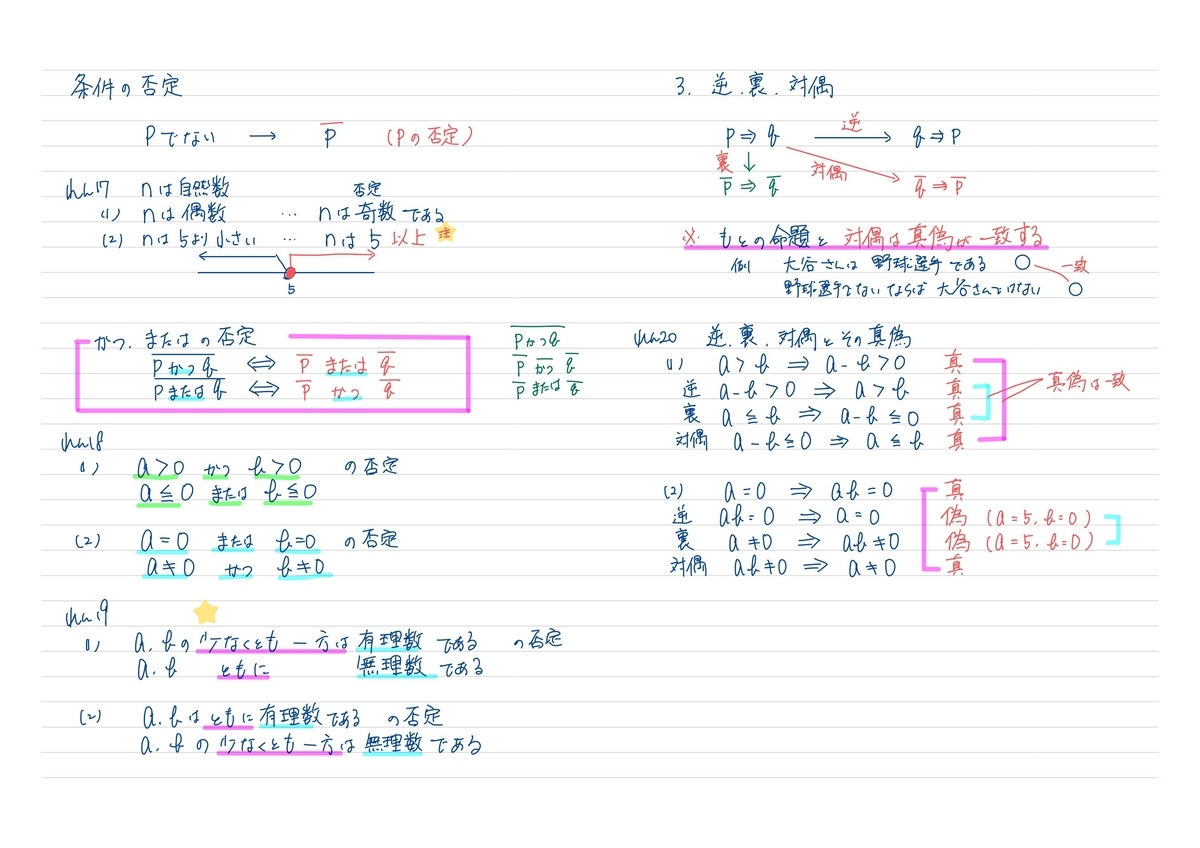 条件の否定
Pでない → P̅ (Pの否定)
練17 nは自然数 否定
(1) nは偶数 … nは奇数である
(2) nは5より小さい … nは5以上 注
5
かつ、またはの否定
P̅ ̅か̅つ̅ ̅q̅ ⇔ P̅ または q̅
P̅ ̅ま̅た̅は̅ ̅q̅ ⇔ P̅ かつ q̅
P̅ ̅か̅つ̅ ̅q̅
P̅ か̅つ̅ q̅
P̅ または q̅
練18
(1) a>0 かつ b>0 の否定
a≦0 または b≦0
(2) a=0 または b=0 の否定
a≠0 かつ b≠0
練19
(1) a.bの少なくとも一方は有理数である の否定
a.b ともに 無理数である
(2) a.bはともに有理数である の否定
a.bの少なくとも一方は無理数である
3. 逆.裏.対偶
P⇒q 逆 q⇒P
裏 対偶
P̅⇒q̅ q̅⇒P̅
※ もとの命題と対偶は真偽が一致する
例 大谷さんは野球選手である ○ 一致
野球選手でないならば大谷さんではない ○
練20 逆.裏.対偶とその真偽
(1) a>b ⇒ a-b>0 真
逆 a-b>0 ⇒ a>b 真 真偽は一致
裏 a≦b ⇒ a-b≦0 真
対偶 a-b≦0 ⇒ a≦b 真
(2) a=0 ⇒ ab=0 真
逆 ab=0 ⇒ a=0 偽 (a=5.b=0)
裏 a≠0 ⇒ ab≠0 偽 (a=5.b=0)
対偶 ab≠0 ⇒ a≠0 真